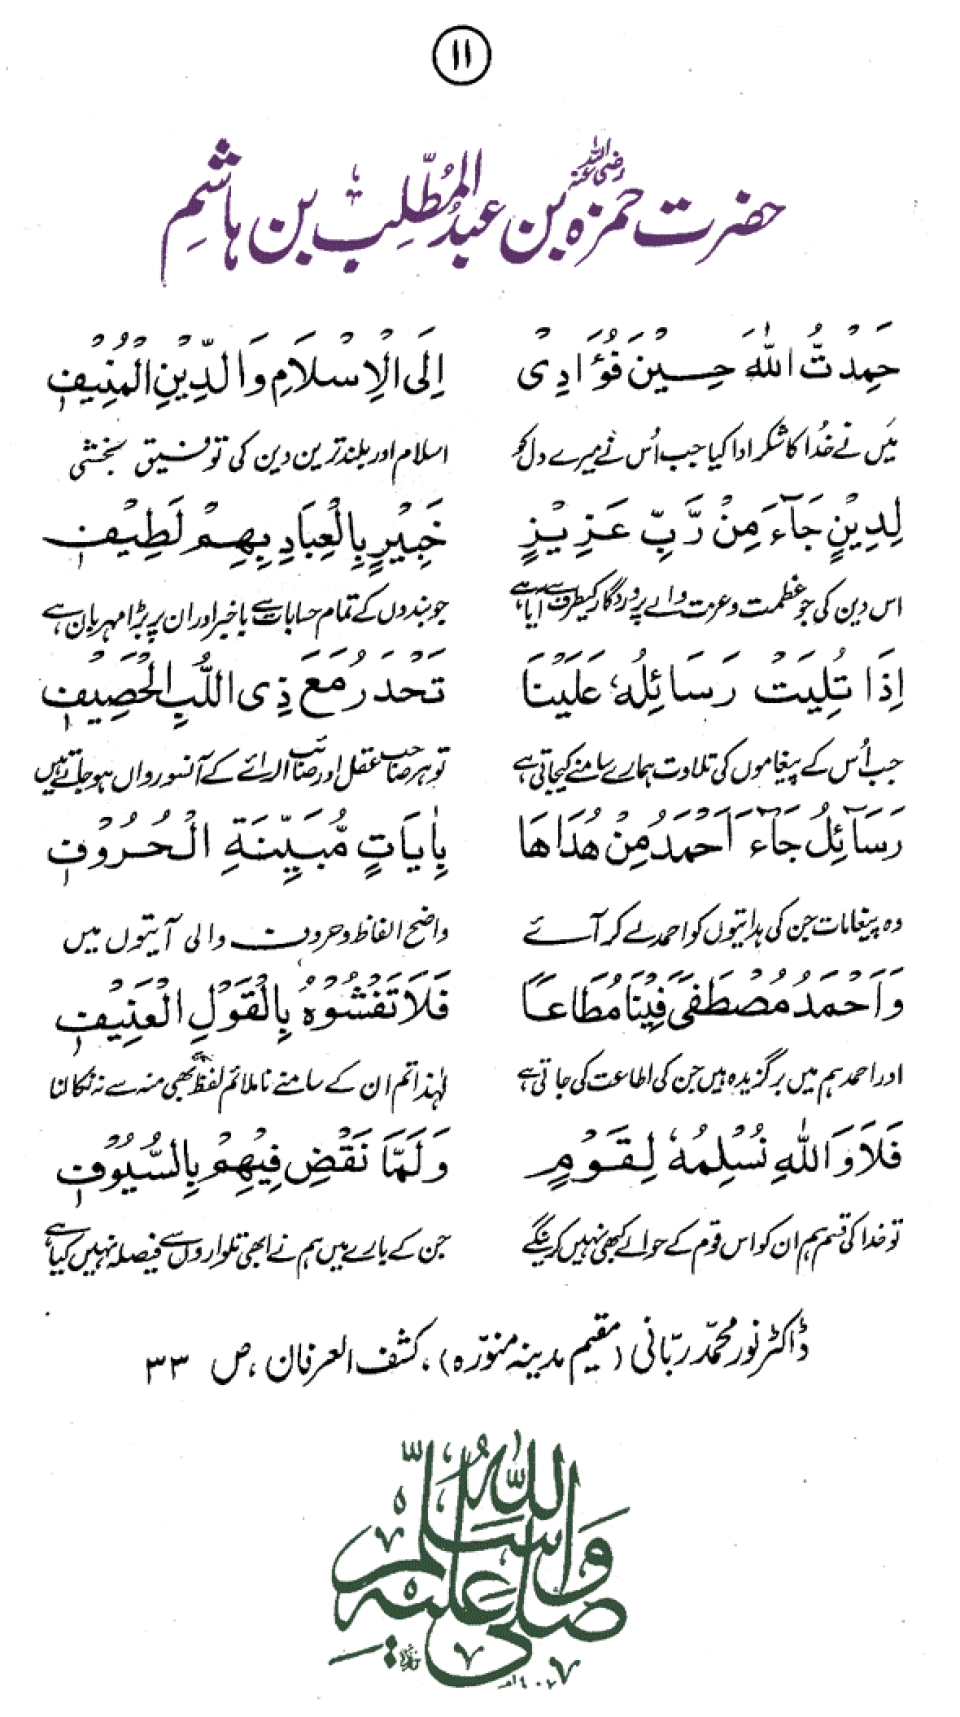 ۱۱
حضرت حمزہ رضی اللہ عنہ بن عبدُ المُطّلِب بن ہاشِم
حَمِدْتُّ اللّٰهَ حِسِيْنَ فَؤَادِىْ اِلَى الْاِسْلَامِ وَالدِّيْنِ الْمُنِيْفِ
میَں نے خُدا کا شکر ادا کیا جب اُس نے میرے دل کو اسلام اور بلند ترین دین کی توفیق بخشی
لِدِيْنٍ جَآءَ مِنْ رَّبِّ عَزِيْزٍ خَبِيْرٍ بِالْعِبَادِ بِهِمْ لَطِيْفٖ
اس دین کی جو عظمت و عزت والے پروردگار کیطرف سے آیا ہے جو بندوں کے تمام حسابات سے باخبر اور ان پر بڑا مہربان ہے
اِذَا تُلِيَتْ رَسَائِلُهٗ عَلَيْنَا تَحْدَرُ مَعَ ذِى اللُّبِ الْحَصِيْفٖ
جب اُس کے پیغاموں کی تلاوت ہمارے سامنے کیجاتی ہے تو ہر صاحب عقل اور صائب الرائے کے آنسو رواں ہو جاتے ہیں
رَسَآئِلُ جَآءَ اَحْمَدُ مِنْ هُدَاهَا بِاٰيَاتٍ مُّبَيِّنَةِ الْحُرُوْفٖ
وہ پیغامات جن کی ہدایتوں کو احمد لے کر آئے واضح الفاظ و حروف والی آیتوں میں
وَاَحْمَدُ مُصْطَفًى فِيْنَا مُطَاعًا فَلَا تَفْشُوْهُ بِالْقَوْلِ الْعَنِيْفٖ
اور احمد ہم میں برگزیدہ ہیں جن کی اطاعت کی جاتی ہے لہٰذا تم ان کے سامنے ناملائم لفظ بھی منہ سے نہ نکالنا
فَلَا وَاللّٰهِ نُسْلِمُهٗ لِقَوْمٍ وَلَمَّا نَقْضِ فِيْهِمْ بِالسُّيُوْفٖ
تو خدا کی قسم ہم ان کو اس قوم کے حوالے کبھی نہیں کرینگے جن کے بارے میں ہم نے ابھی تلواروں سے فیصلہ نہیں کیا ہے
ڈاکٹر نور محمّد ربّانی (مقیم مدینہ منوّرہ)، کشف العرفان، ص ۳۳
صلى الله عليه وسلم